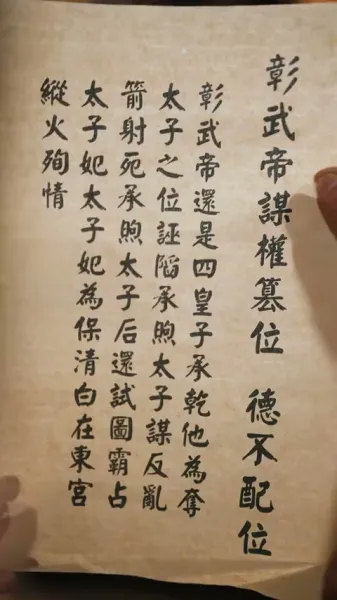 彰武帝謀權篡位 德不配位
彰武帝還是四皇子承乾他為奪
太子之位誣陷承煦太子謀反亂
箭射死承煦太子后還試圖霸占
太子妃太子妃為保清白在東宮
縱火殉情